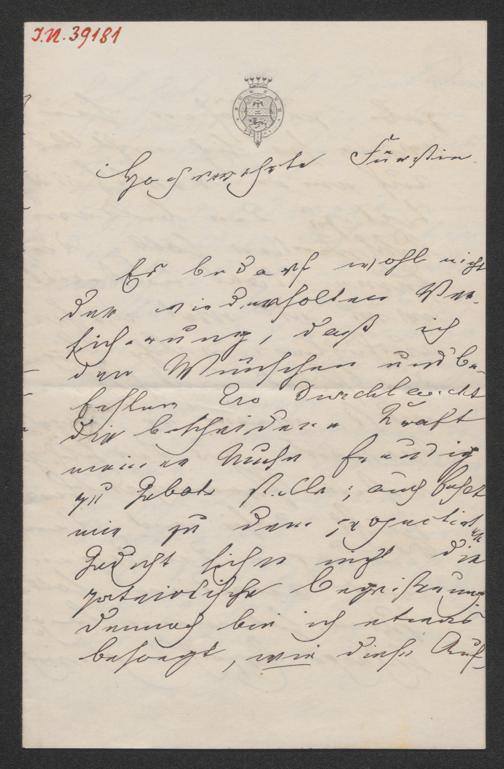 I.N. 39181
Hochverehrte Fürstin
Es bedarf wohl nicht
der wiederholten Ver-
sicherung, daß ich
den Wünschen und Be-
fehlen Ew Durchlaucht
die bescheidene Kraft
meiner Muse freudig
zu Gebote stelle; auch fehlt
mir zu dem projectirten
Gedicht sicher nicht die
patriotische Begeisterung
dennoch bin ich etwas
besorgt, wie diese Auf-